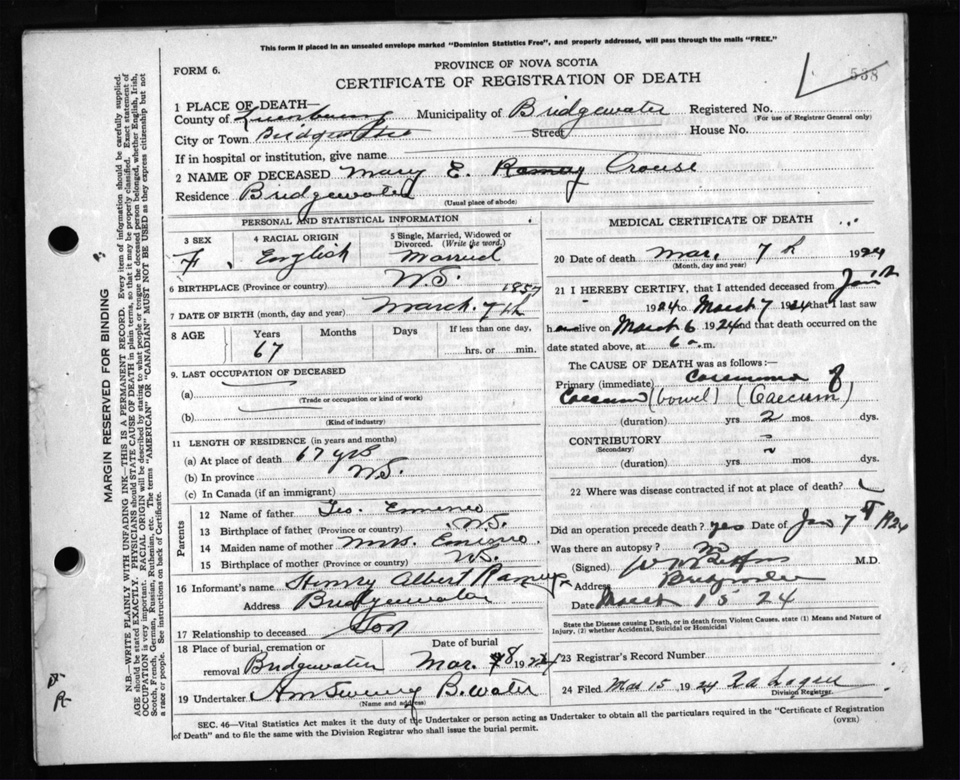 This form if placed in an unsealed envelope marked "Dominion Statistics Free", and properly addressed, will pass through the mails "FREE."
FORM 6.
PROVINCE OF NOVA SCOTIA
CERTIFICATE OF REGISTRATION OF DEATH
538
1 PLACE OF DEATH—
County of Lunenburg Municipality of Bridgewater Registered No.
(For use of Registrar General only)
City or Town Bridgewater Street House No.
If in hospital or institution, give name
2 NAME OF DECEASED Mary E. Ramey Crouse
Residence Bridgewater
(Usual place of abode)
PERSONAL AND STATISTICAL INFORMATION
3 SEX 4 RACIAL ORIGIN 5 Single, Married, Widowed or Divorced. (Write the word.)
F. English Married
6 BIRTHPLACE (Province or country) N.S.
7 DATE OF BIRTH (month, day and year) March 7th 1857
8 AGE Years Months Days If less than one day,
67 hrs. or min.
9. LAST OCCUPATION OF DECEASED
(a)
(Trade or occupation or kind of work)
(b)
(Kind of industry)
11 LENGTH OF RESIDENCE (in years and months)
(a) At place of death 67 yrs
(b) In province N.S.
(c) In Canada (if an immigrant)
Parents
12 Name of father Geo.
13 Birthplace of father (Province or country) N.S.
14 Maiden name of mother Mrs.
15 Birthplace of mother (Province or country) N.S.
16 Informant's name Henry Albert Ramey
Address Bridgewater
17 Relationship to deceased Son
18 Place of burial, cremation or removal Bridgewater Date of burial Mar. 8 1924
19 Undertaker B.water
(Name and address)
MEDICAL CERTIFICATE OF DEATH
20 Date of death Mar. 7th 1924
(Month, day and year)
21 I HEREBY CERTIFY, that I attended deceased from Jan
1924 to March 7 1924 that I last saw
h alive on March 6 1924 and that death occurred on the
date stated above, at 6 m.
The CAUSE OF DEATH was as follows:—
Primary (immediate) Carcinoma of
Caecum (bowel) (Caecum)
(duration) yrs 2 mos. dys.
CONTRIBUTORY
(Secondary)
(duration) yrs mos. dys.
22 Where was disease contracted if not at place of death?
Did an operation precede death? yes Date of Jan 7 1924
Was there an autopsy? no
(Signed) M.D.
Address Bridgewater
Date March 15 24
State the Disease causing Death, or in death from Violent Causes. state (1) Means and Nature of Injury, (2) whether Accidental, Suicidal or Homicidal
23 Registrar's Record Number
24 Filed Mar 15 1924
Division Registrar.
SEC. 46—Vital Statistics Act makes it the duty of the Undertaker or person acting as Undertaker to obtain all the particulars required in the "Certificate of Registration
of Death" and to file the same with the Division Registrar who shall issue the burial permit.
(OVER)
MARGIN RESERVED FOR BINDING
N.B.—WRITE PLAINLY WITH UNFADING INK—THIS IS A PERMANENT RECORD. Every item of information should be carefully supplied.
AGE should be stated EXACTLY. PHYSICIANS should STATE CAUSE OF DEATH in plain terms, so that it may be properly classified. Exact statement of
OCCUPATION is very important. RACIAL ORIGIN will be described by stating to what people or tongue the deceased person belonged, whether English, Irish,
Scotch, French, German, Russian, Ruthenian, etc. The terms "AMERICAN" OR "CANADIAN" MUST NOT BE USED as they express citizenship but not
a race or people. See instructions on back of Certificate.